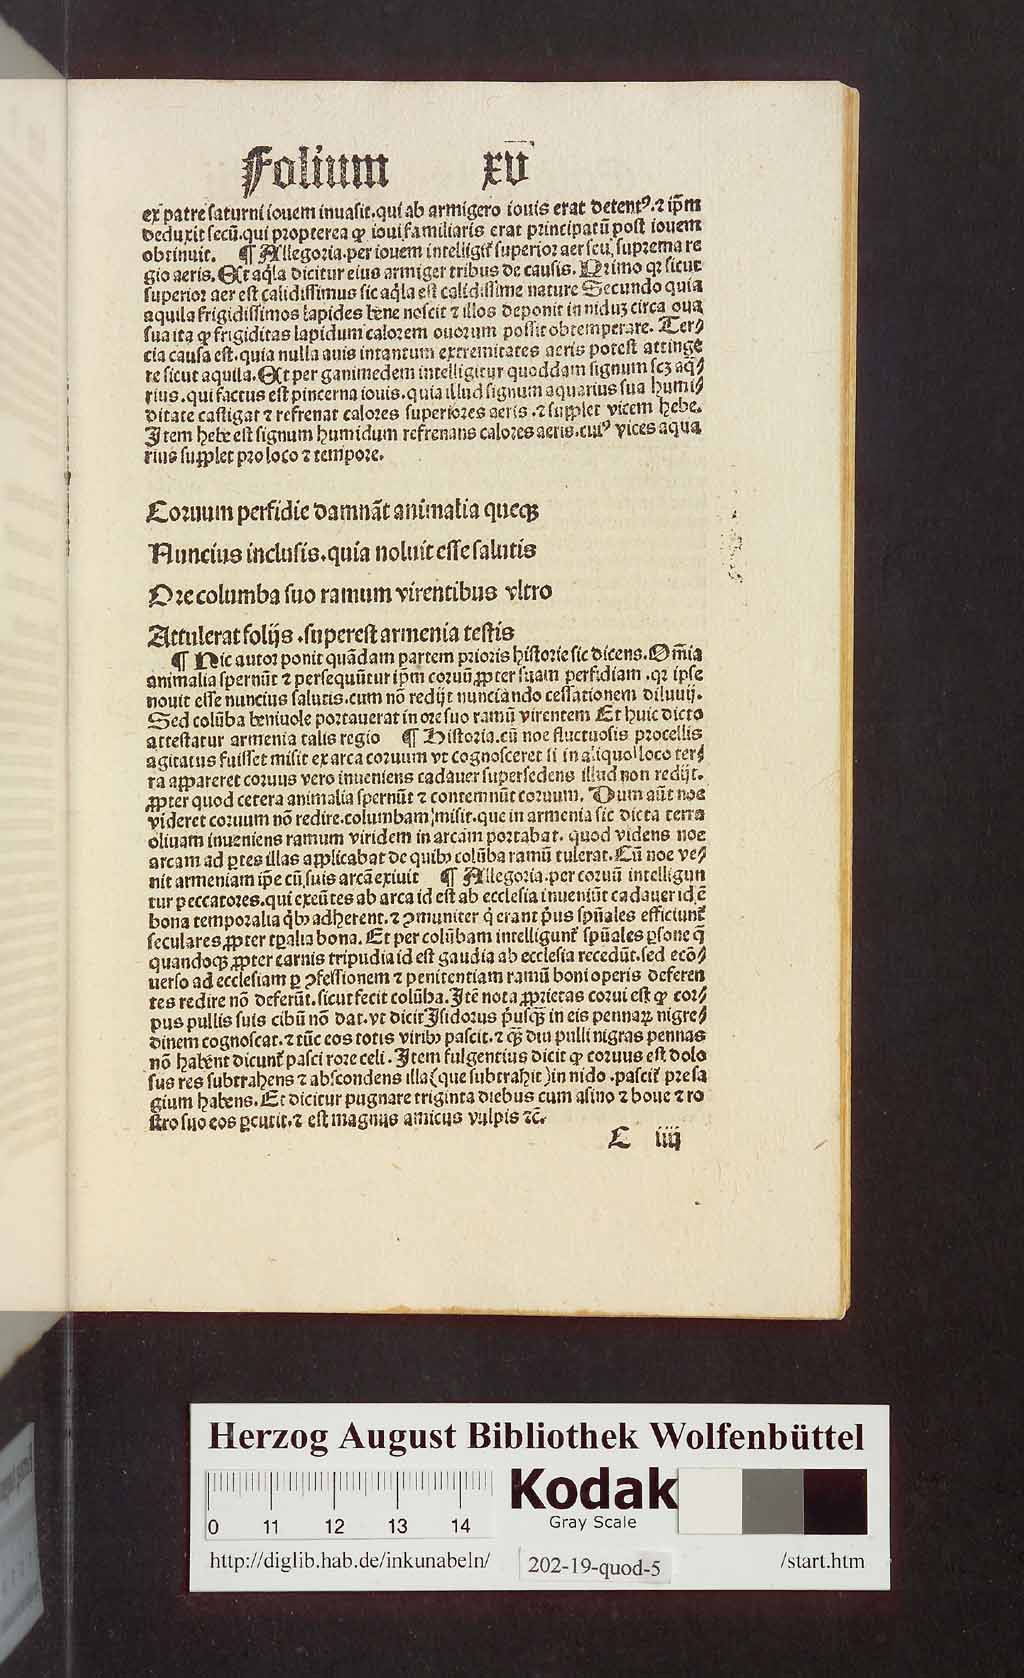 Folium xv
ex patre saturni iouem inuasit.qui ab armigero iouis erat detentꝰ.⁊ ip̄m
deduxit secū.qui propterea ꝙ ioui familiaris erat principatū post iouem
obtinuit. ¶ Allegoria.per iouem intelligit̄ superior aer seu suprema re
gio aeris. Et aq̇la dicitur eius armiger tribus de causis. Primo qꝛ sicut
superior aer est calidissimus sic aq̇la est calidissime nature Secundo quia
aquila frigidissimos lapides bene noscit ⁊ illos deponit in niduꝫ circa oua
sua ita ꝙ frigiditas lapidum calorem ouorum possit obtemperare. Ter⸗
cia causa est.quia nulla auis intantum extremitates aeris potest attinge
re sicut aquila. Et per ganimedem intelligitur quoddam signum scꝫ aq̄⸗
rius.qui factus est pincerna iouis.quia illud signum aquarius sua humi⸗
ditate castigat ⁊ refrenat calores superiores aeris.⁊ supplet vicem hebe.
Item hebe est signum humidum refrenans calores aeris.cuiꝰ vices aqua
rius supplet pro loco ⁊ tempore.
Coruum perfidie damnāt animalia queqꝫ
Nuncius inclusis.quia noluit esse salutis
Ore columba suo ramum virentibus vltro
Attulerat folijs .superest armenia testis
¶ Hic autor ponit quādam partem prioris historie sic dicens. Om̄ia
animalia spernūt ⁊ persequūtur ip̄m coruū ꝓpter suam perfidiam.qꝛ ipse
nouit esse nuncius salutis.cum nō redijt nunciando cessationem diluuij.
Sed colūba beniuole portauerat in ore suo ramū virentem Et huic dicto
attestatur armenia talis regio ¶ Historia.cū noe fluctuosis procellis
agitatus fuisset misit ex arca coruum vt cognosceret si in aliquo loco ter⸗
ra appareret coruus vero inueniens cadauer supersedens illud non redijt.
ꝓpter quod cetera animalia spernūt ⁊ contemnūt coruum. Dum aūt noe
videret coruum nō redire.columbam misit.que in armenia sic dicta terra
oliuam inueniens ramum viridem in arcam portabat. quod videns noe
arcam ad ꝑtes illas applicabat de quibꝰ colūba ramū tulerat. Cū noe ve⸗
nit armeniam ip̄e cū suis arcā exiuit ¶ Allegoria.per coruū intelligun
tur peccatores.qui exeūtes ab arca id est ab ecclesia inueniūt cadauer id ē
bona temporalia q̇bꝰ adherent.⁊ ꝯmuniter q̇ erant p̄us sp̄uales efficiunt̄
seculares ꝓpter tꝑalia bona. Et per colūbam intelligunt̄ sp̄uales ꝑsone q̄
quandoqꝫ ꝓpter carnis tripudia id est gaudia ab ecclesia recedūt.sed ecō⸗
uerso ad ecclesiam ꝑ ꝯfessionem ⁊ penitentiam ramū boni operis deferen
tes redire nō deferūt.sicut fecit colūba. Itē nota ꝓprietas corui est ꝙ cor⸗
pus pullis suis cibū nō dat.vt dicit Isidorus p̄usqꝫ in eis pennaꝝ nigre⸗
dinem cognoscat.⁊ tūc eos totis viribꝰ pascit.⁊ qꝫ̄ diu pulli nigras pennas
nō habent dicunt̄ pasci rore celi. Item fulgentius dicit ꝙ coruus est dolo
sus res subtrahens ⁊ abscondens illa (que subtrahit) in nido .pascit̄ presa
gium habens. Et dicitur pugnare triginta diebus cum asino ⁊ boue ⁊ ro
stro suo eos ꝑcutit.⁊ est magnus amicus vulpis ⁊c̄.
C iiij
Herzog August Bibliothek Wolfenbüttel
0 11 12 13 14
Kodak
Gray Scale
http://diglib.hab.de/inkunabeln/ 202-19-quod-5 /start.htm